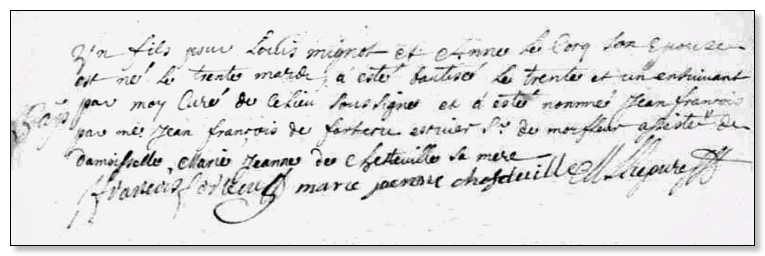 Un fils pour Loüis mignot et Anne le Coq son Epouze
est né le trente mardi, a esté batisé le trente et un ensuivant
par moy Curé de ce lieu soussigné et a esté nommé Jean francois
par mr Jean francois de forterie escuier Sr de morfleur assisté de
damoiselle Marie Jeanne de Chetteville sa mere
marie jeanne chesdeville